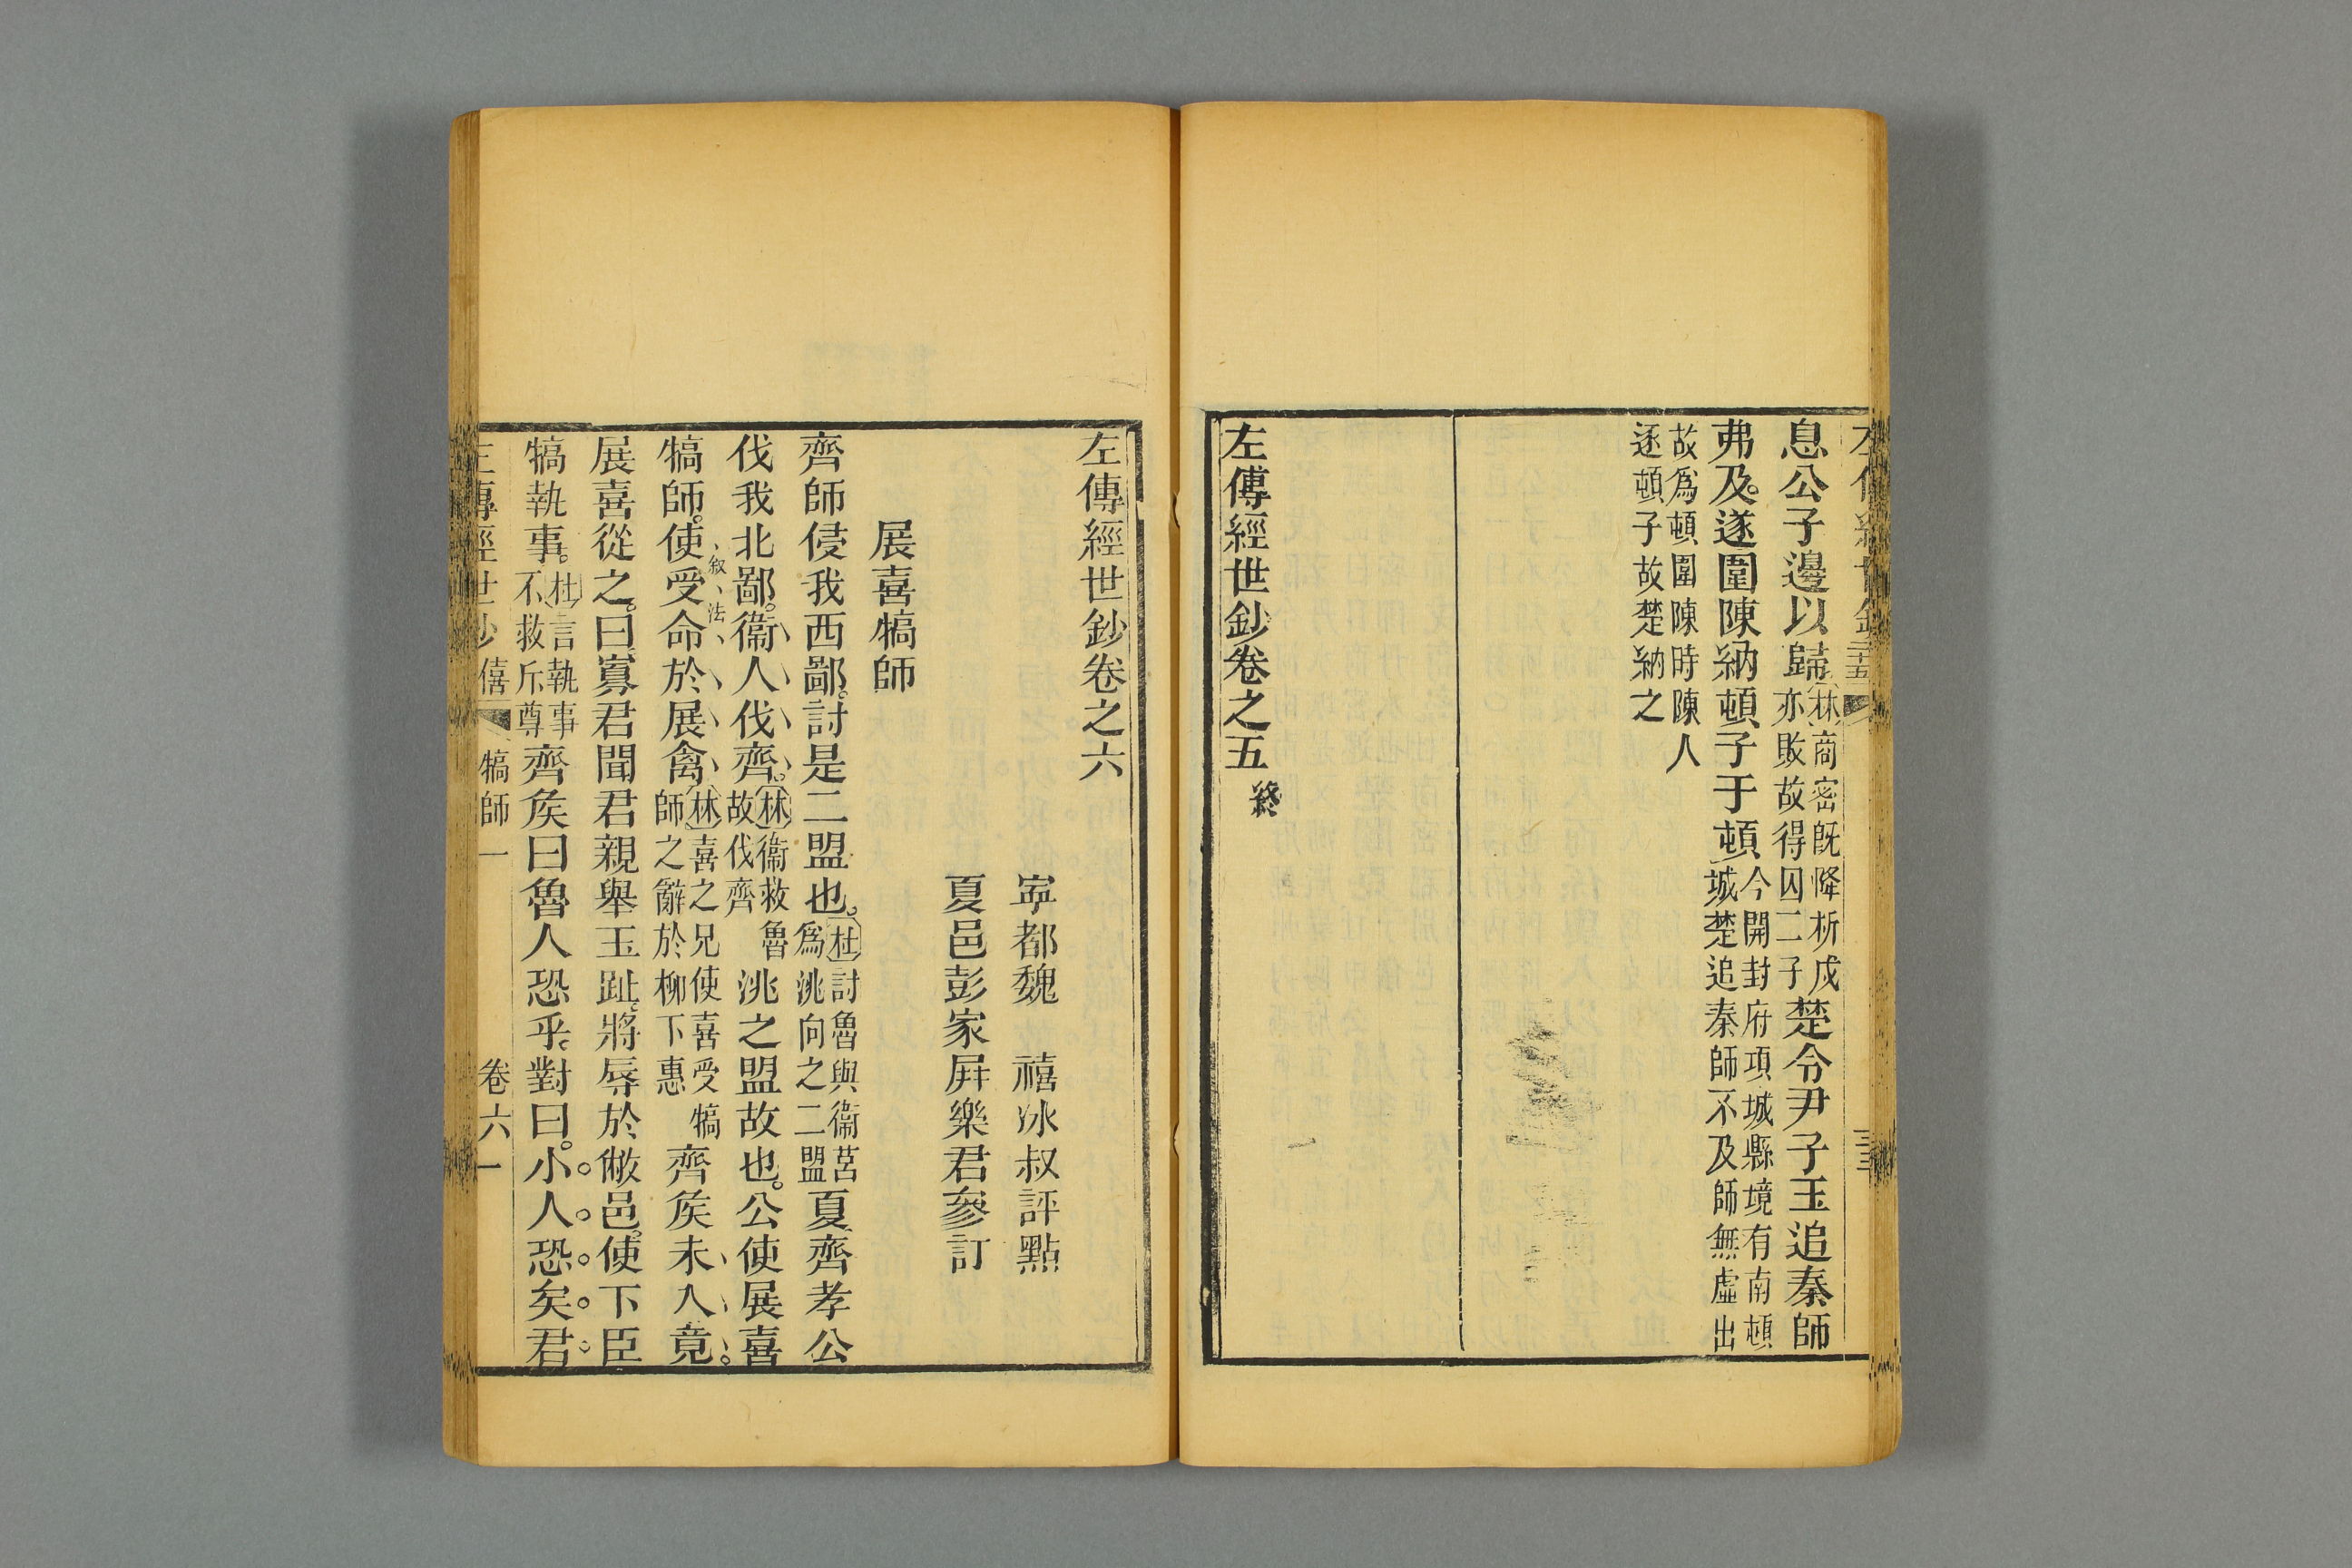 息公子邊以歸林商密旣降析戍亦敗故得囚二子楚令尹子玉追秦師
弗及遂圍陳納頓子于頓今開封府項城縣境有南頓城楚追秦師不及師無虛出
故爲頓圍陳時陳人逐頓子故楚納之
左傳經世鈔卷之五終
左傳經世鈔卷之六
寧都魏 禧冰叔評點
夏邑彭家屛樂君參訂
展喜犒師
齊師侵我西鄙討是二盟也杜討魯與衞莒爲洮向之二盟夏齊孝公
伐我北鄙衞人伐齊林衞救魯故伐齊洮之盟故也公使展喜
叙法
犒師使受命於展禽林喜之兄使喜受犒師之辭於柳下惠齊矦未入竟
展喜從之曰寡君聞君親舉玉趾將辱於敝邑使下臣
犒執事杜言執事不敢斥尊齊矦曰魯人恐乎對曰小人恐矣君
僖 犒師一 卷六 一